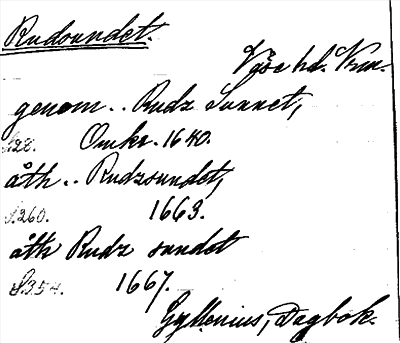 Rudsundet.
Väse hd. Vrm.
genom .. Rudz Sunnet,
S.28. Omkr. 1640.
åth .. Rudzsundet,
S.260. 1663.
åth Rudz sundet
S.354. 1667.
Gyllenius, Dagbok.